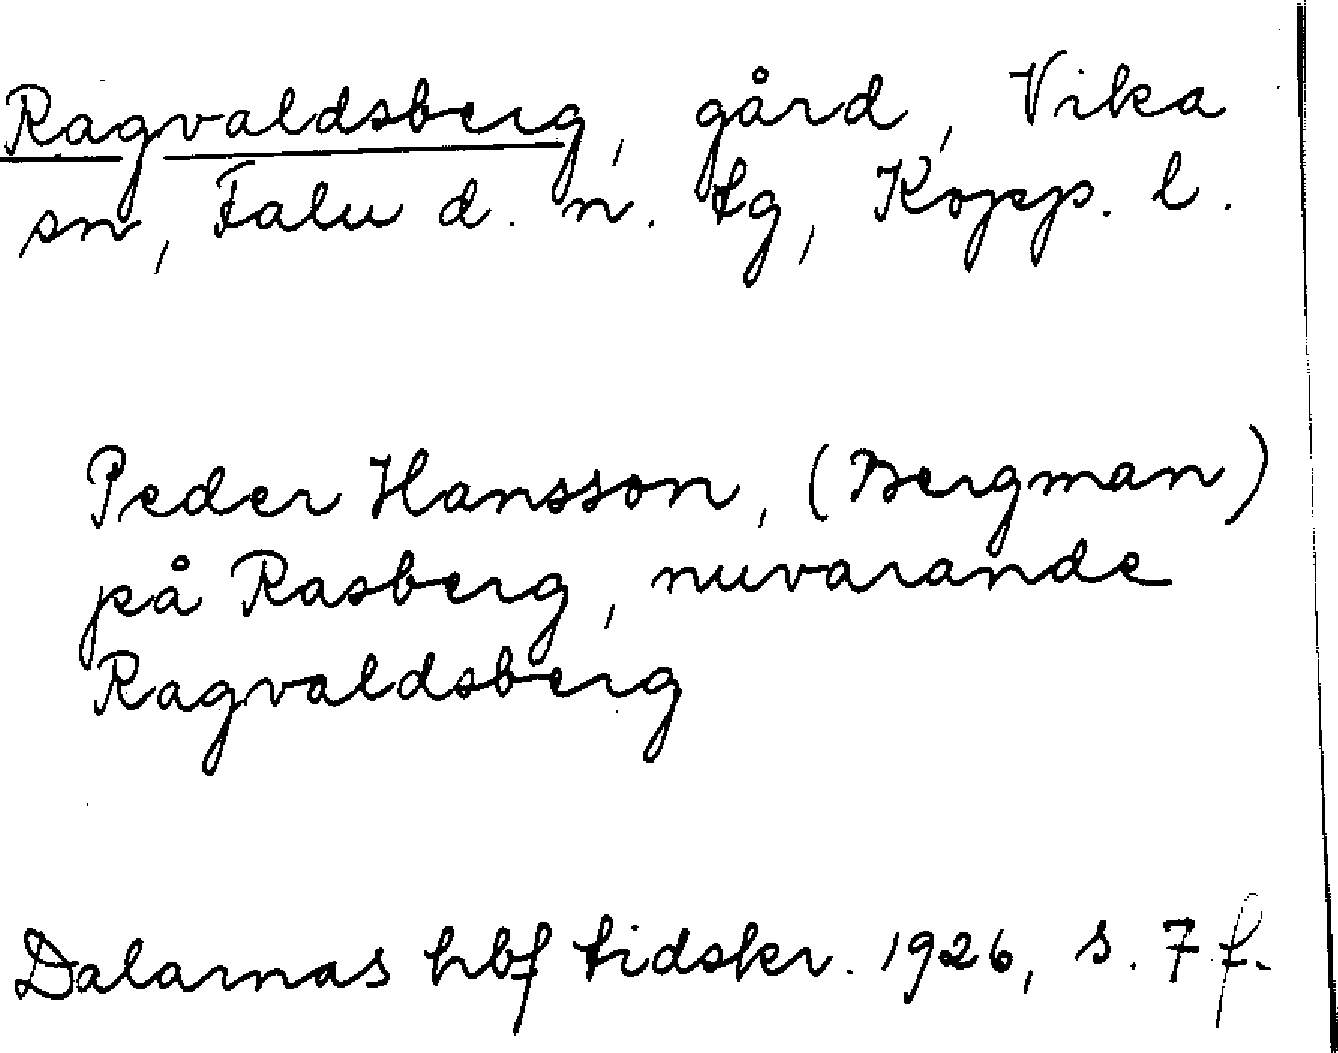 Ragvaldsberg, gård, Vika
sn, Falu d. n. tg, Kopp. l.
Peder Hansson, (Bergman)
på Rasberg, nuvarande
Ragvaldsberg
Dalarnas hbf tidskr. 1926, s. 7 f.